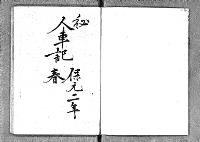 秘
人車記 保元二年
春